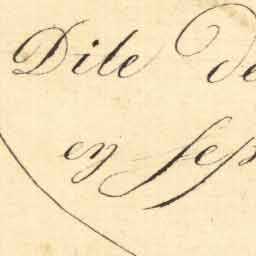 Dile de
en sep